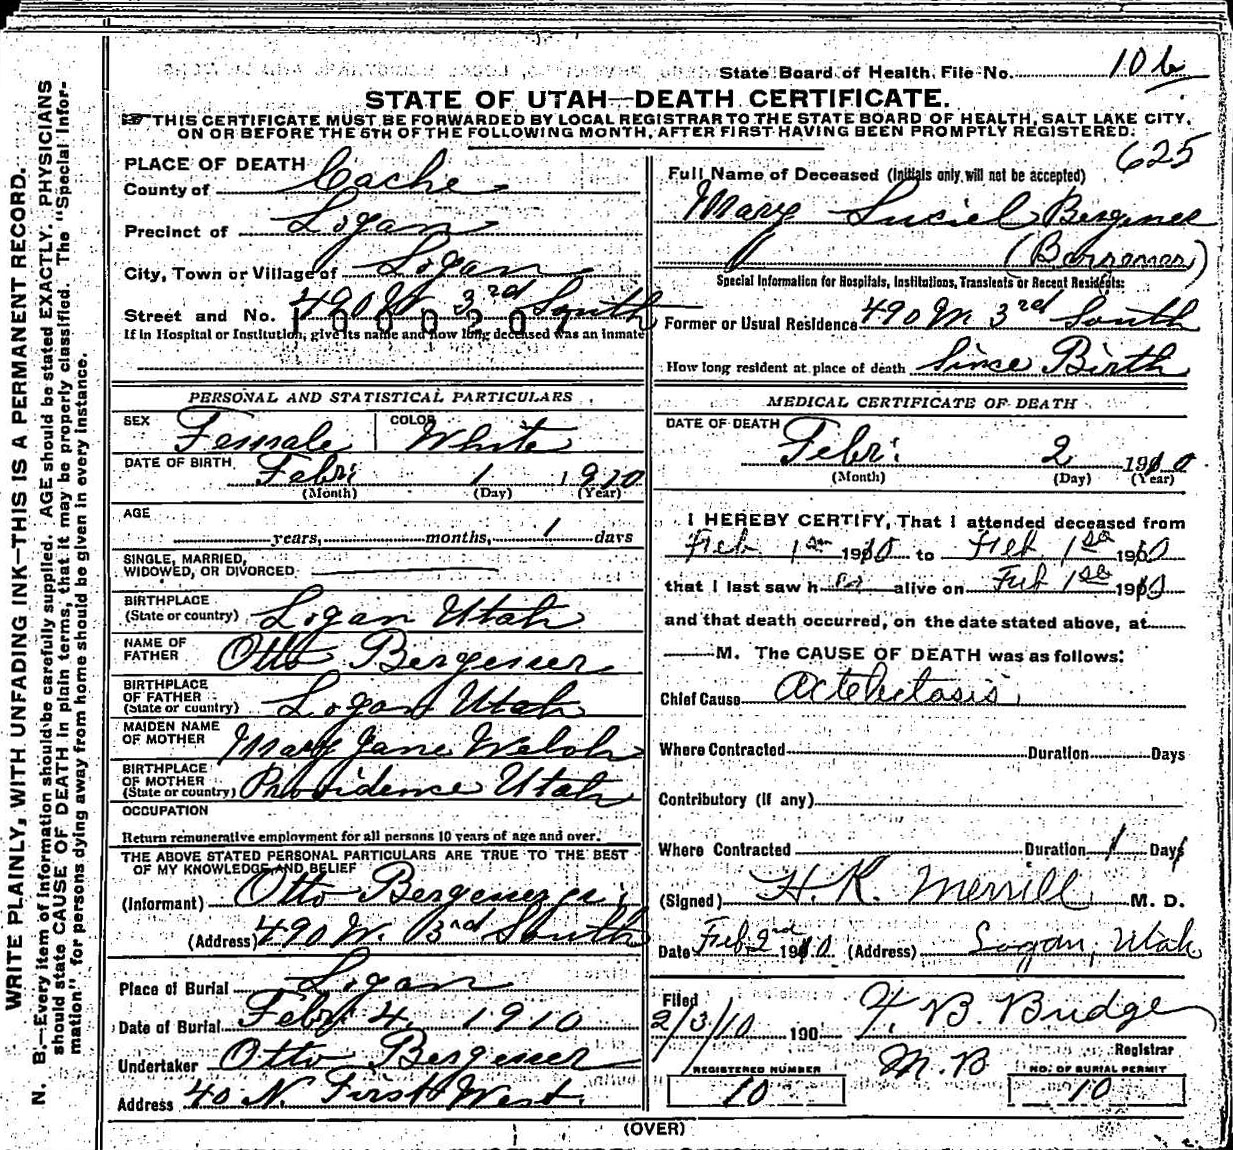 State Board of Health File No. 106
STATE OF UTAH—DEATH CERTIFICATE.
THIS CERTIFICATE MUST BE FORWARDED BY LOCAL REGISTRAR TO THE STATE BOARD OF HEALTH, SALT LAKE CITY,
ON OR BEFORE THE 5TH OF THE FOLLOWING MONTH, AFTER FIRST HAVING BEEN PROMPTLY REGISTERED.
625
PLACE OF DEATH
County of Cache
Precinct of Logan
City, Town or Village of Logan
Street and No. 490 W 3rd South
If in Hospital or Institution, give its name and how long deceased was an inmate
PERSONAL AND STATISTICAL PARTICULARS
SEX Female COLOR White
DATE OF BIRTH Febr. 1 1910
(Month) (Day) (Year)
AGE
years, months, 1 days
SINGLE, MARRIED,
WIDOWED, OR DIVORCED
BIRTHPLACE
(State or country) Logan Utah
NAME OF
FATHER Otto Bergener
BIRTHPLACE
OF FATHER
(State or country) Logan Utah
MAIDEN NAME
OF MOTHER Mary Jane Welch
BIRTHPLACE
OF MOTHER
(State or country) Providence Utah
OCCUPATION
Return remunerative employment for all persons 10 years of age and over.
THE ABOVE STATED PERSONAL PARTICULARS ARE TRUE TO THE BEST
OF MY KNOWLEDGE AND BELIEF
(Informant) Otto Bergener
(Address) 490 W. 3rd South
Place of Burial Logan
Date of Burial Febr 4 1910
Undertaker Otto Bergener
Address 40 N. First West.
Full Name of Deceased (Initials only will not be accepted)
Mary Luciel Bergener
(Bergener)
Special Information for Hospitals, Institutions, Transients or Recent Residents:
Former or Usual Residence 490 W 3rd South
How long resident at place of death Since Birth
MEDICAL CERTIFICATE OF DEATH
DATE OF DEATH Febr. 2 1910
(Month) (Day) (Year)
I HEREBY CERTIFY, That I attended deceased from
Feb 1st 1910 to Feb 1st 1910
that I last saw her alive on Feb 1st 1910
and that death occurred, on the date stated above, at
M. The CAUSE OF DEATH was as follows:
Chief Cause Actelectasis
Where Contracted Duration Days
Contributory (if any)
Where Contracted Duration 1 Days
(Signed) H. K. Merrill M. D.
Date Feb 2nd 1910 (Address) Logan, Utah
Filed
2/3/10 190 F. B. Budge
Registrar
M.B
REGISTERED NUMBER NO. OF BURIAL PERMIT
10 10
(OVER)
WRITE PLAINLY, WITH UNFADING INK—THIS IS A PERMANENT RECORD.
N. B.—Every item of information should be carefully supplied. AGE should be stated EXACTLY. PHYSICIANS
should state CAUSE OF DEATH in plain terms, that it may be properly classified. The "Special Infor-
mation" for persons dying away from home should be given in every instance.